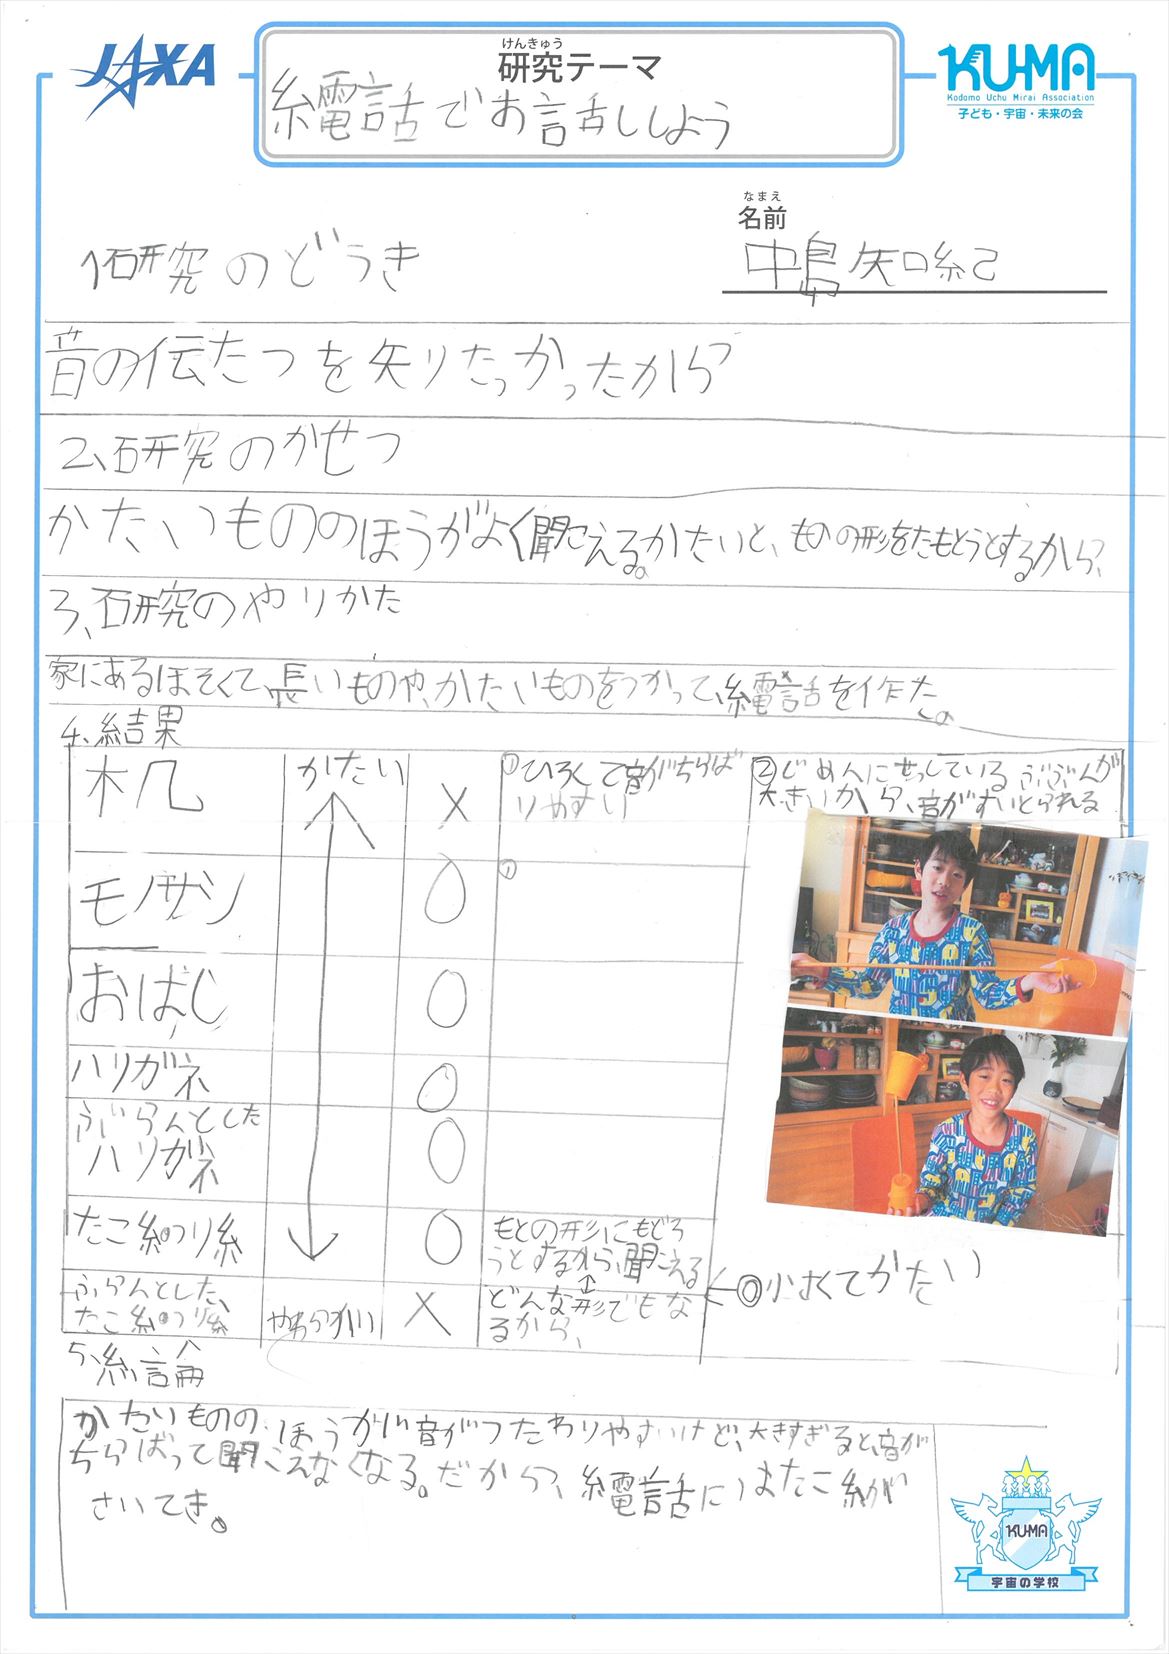 JAXA
けんきゅう
研究テーマ
糸電話でお話ししよう
KU-MA
Kodomo Uchu Mirai Association
子ども・宇宙・未来の会
なまえ
名前
中島矢口糸己
1研究のどうき
音の伝たつを矢りたっかったから
2、研究のかせつ
かたいもののほうがよく聞こえる。かたいと、もとの形をたもとうとするから、
3、研究のやりかた
家にあるほそくて、長いものや、かたいものをつかって、糸電話を作た。
4、結果
木几
かたい
×
①ひろくて音がちらば
りやすい
②じめんにせっしているぶぶんが
大きいから、音がすいとられる
モノサシ
○
①
おはし
○
ハリガネ
○
ぶらんとした
ハリガネ
○
たこ糸つり糸
○
もとの形にもどろ
うとするから、聞こえる
ぶらんとした、
たこ糸つり糸
やわらかい
×
どんな形でもな
るから、
◎小さくてかたい
5、結論
かたいもののほうが音がつたわりやすいけど、大きすぎると、音が
ちらばって聞こえなくなる。だから、糸電話にはたこ糸が
さいてき。
KU-MA
宇宙の学校